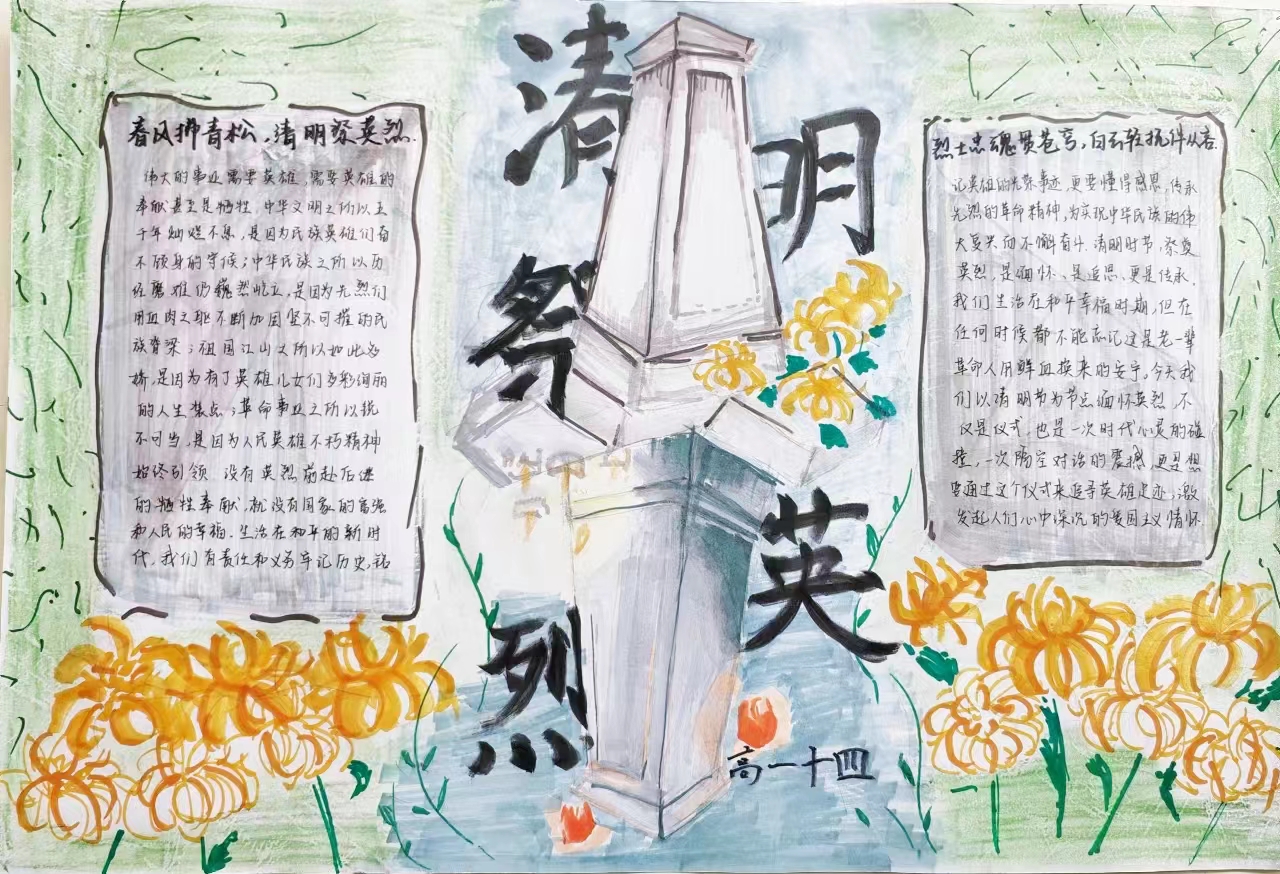 清明祭英烈
春风拂青松，清明祭英烈.
伟大的事业需要英雄，需要英雄的
奉献甚至是牺牲. 中华文明之所以五
千年灿烂不息，是因为民族英雄们奋
不顾身的守候；中华民族之所以历
经磨难仍巍然屹立，是因为先烈们
用血肉之躯不断加固坚不可摧的民
族脊梁；祖国江山之所以如此多
娇，是因为有了英雄儿女们多彩绚丽
的人生装点；革命事业之所以锐
不可当，是因为人民英雄不朽精神
始终引领 没有英烈前赴后继
的牺牲奉献，就没有国家的富强
和人民的幸福. 生活在和平的新时
代，我们有责任和义务牢记历史，铭
烈士忠魂贯苍穹，白云轻抚伴从容
记英雄的光荣事迹，更要懂得感恩，传承
先烈的革命精神，为实现中华民族的伟
大复兴而不懈奋斗. 清明时节，祭奠
英烈，是缅怀、是追思、更是传承，
我们生活在和平幸福时期，但在
任何时候都不能忘记这是老一辈
革命人用鲜血换来的安宁，今天我
们以清明节为节点缅怀英烈，不
仅是仪式，也是一次时代心灵的碰
撞，一次隔空对话的震撼，更是想
要通过这个仪式来追寻英雄足迹，激
发起人们心中深沉的爱国主义情怀
高一十四